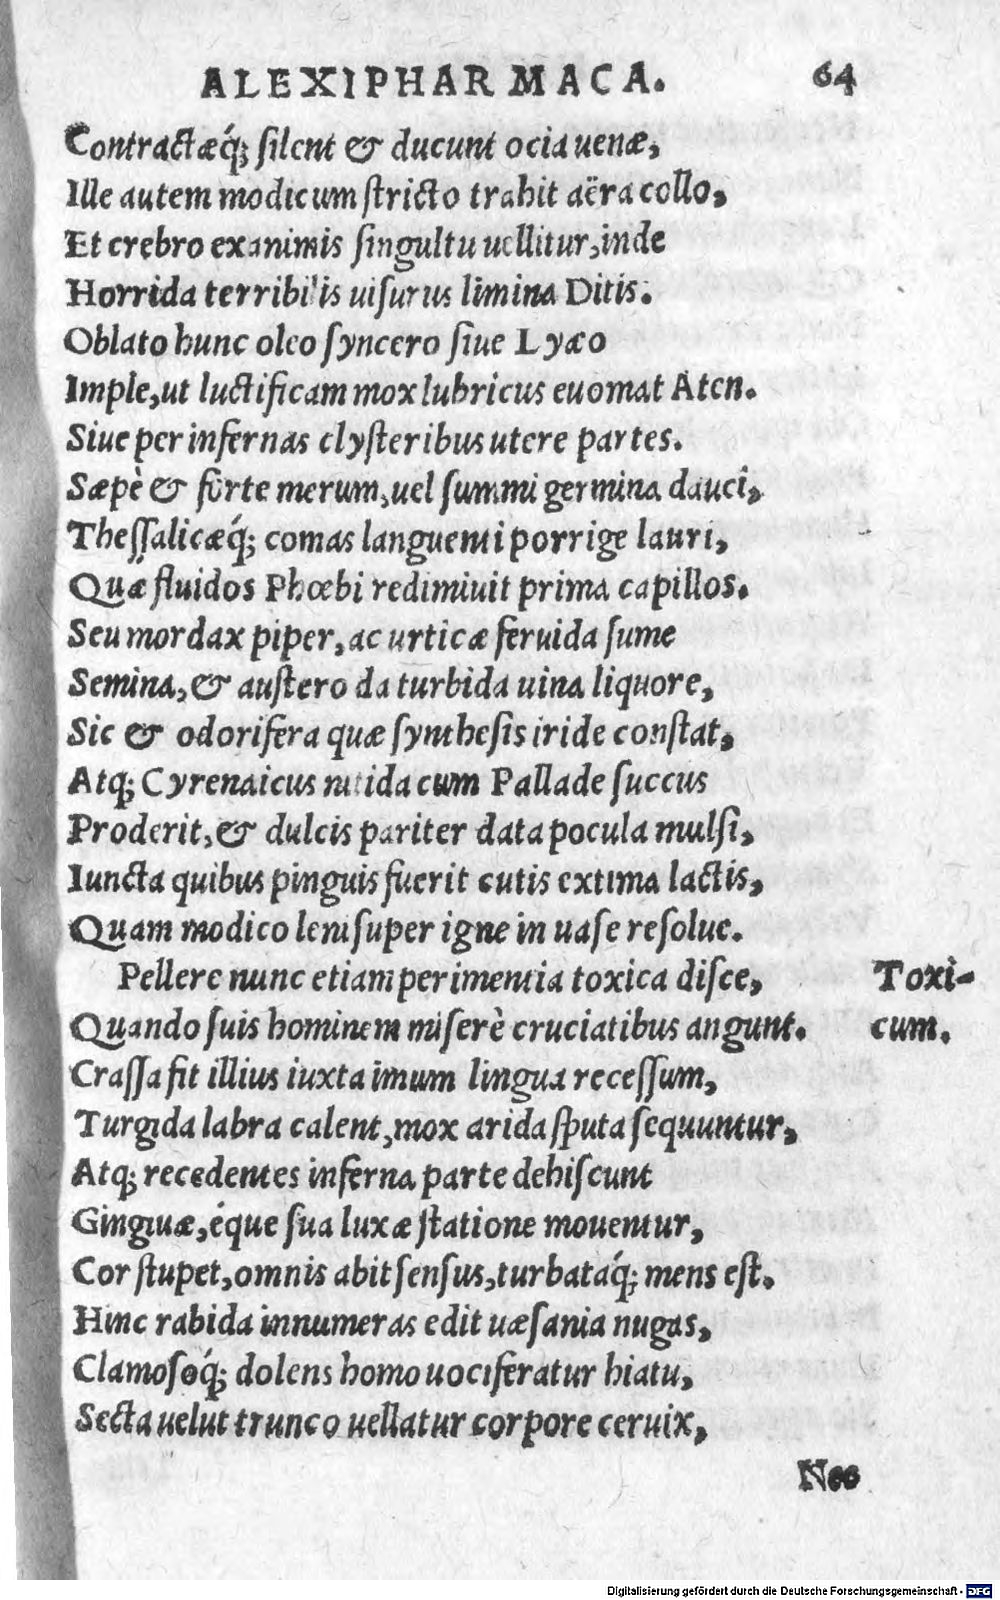 ALEXIPHARMACA. 64
Contractæq́; ſilent & ducunt ocia uenæ,
Ille autem modicum ſtricto trahit aëra collo,
Et crebro exanimis ſingultu uellitur, inde
Horrida terribilis uiſurus limina Ditis.
Oblato hunc oleo ſyncero ſiue Lyæo
Imple, ut luctificam mox lubricus euomat Aten.
Siue per infernas clyſteribus utere partes.
Sæpè & forte merum, uel ſummi germina dauci,
Theſſalicæq́; comas languenti porrige lauri,
Quæ fluidos Phœbi redimiuit prima capillos.
Seu mordax piper, ac urticæ feruida ſume
Semina, & auſtero da turbida uina liquore,
Sic & odorifera quæ ſyntheſis iride conſtat,
Atq; Cyrenaicus nitida cum Pallade ſuccus
Proderit, & dulcis pariter data pocula mulſi,
Iuncta quibus pinguis fuerit cutis extima lactis,
Quam modico leni ſuper igne in uaſe reſolue.
Pellere nunc etiam perimentia toxica diſce, Toxi-
Quando ſuis hominem miſerè cruciatibus angunt. cum.
Craſſa fit illius iuxta imum lingua receſſum,
Turgida labra calent, mox arida ſputa ſequuntur,
Atq; recedentes inferna parte dehiſcunt
Gingiuæ, éque ſua luxæ ſtatione mouentur,
Cor ſtupet, omnis abit ſenſus, turbataq́; mens eſt.
Hinc rabida innumeras edit uæſania nugas,
Clamoſoq́; dolens homo uociferatur hiatu,
Secta uelut trunco uellatur corpore ceruix,
Nec
Digitalisierung gefördert durch die Deutsche Forschungsgemeinschaft - DFG